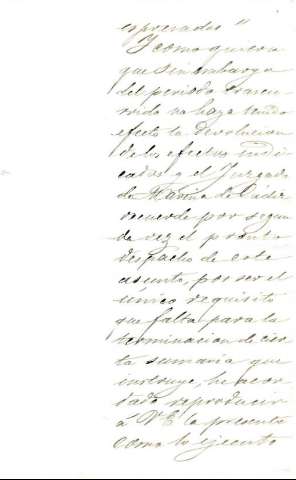 espresados"
Y como quiera
que sin embargo
del periodo trascu
rrido no haya tenido
efecto la devolucion
de los efectos indi
cados y el Juzgado
de Marina de Cadiz
recuerde por segun
da vez el pronto
despacho de este
asunto, por ser el
único requisito
que falta para la
terminacion de cier
ta sumaria que
instruye, he acor
dado reproducir
á VE la presente
como lo ejecuto